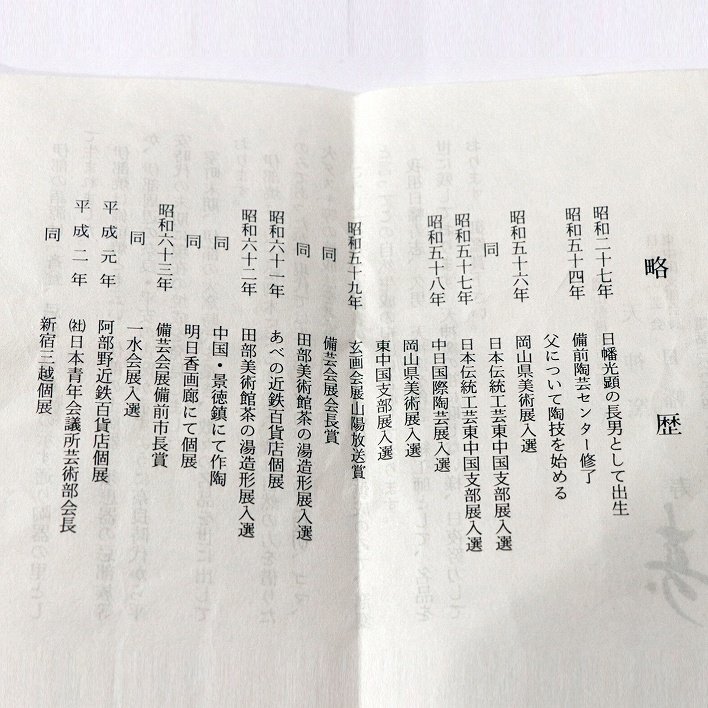 略歴
昭和二十七年 日幡光顕の長男として出生
昭和五十四年 備前陶芸センター修了
父について陶技を始める
昭和五十六年 岡山県美術展入選
同 日本伝統工芸東中国支部展入選
昭和五十七年 日本伝統工芸東中国支部展入選
昭和五十八年 中日国際陶芸展入選
岡山県美術展入選
東中国支部展入選
昭和五十九年 玄画会展山陽放送賞
同 備芸会展会長賞
同 田部美術館茶の湯造形展入選
昭和六十一年 あべの近鉄百貨店個展
昭和六十二年 田部美術館茶の湯造形展入選
同 中国・景徳鎮にて作陶
同 明日香画廊にて個展
昭和六十三年 備芸会展備前市長賞
同 一水会展入選
平成元年 阿部野近鉄百貨店個展
平成二年 ㈳日本青年会議所芸術部会長
同 新宿三越個展